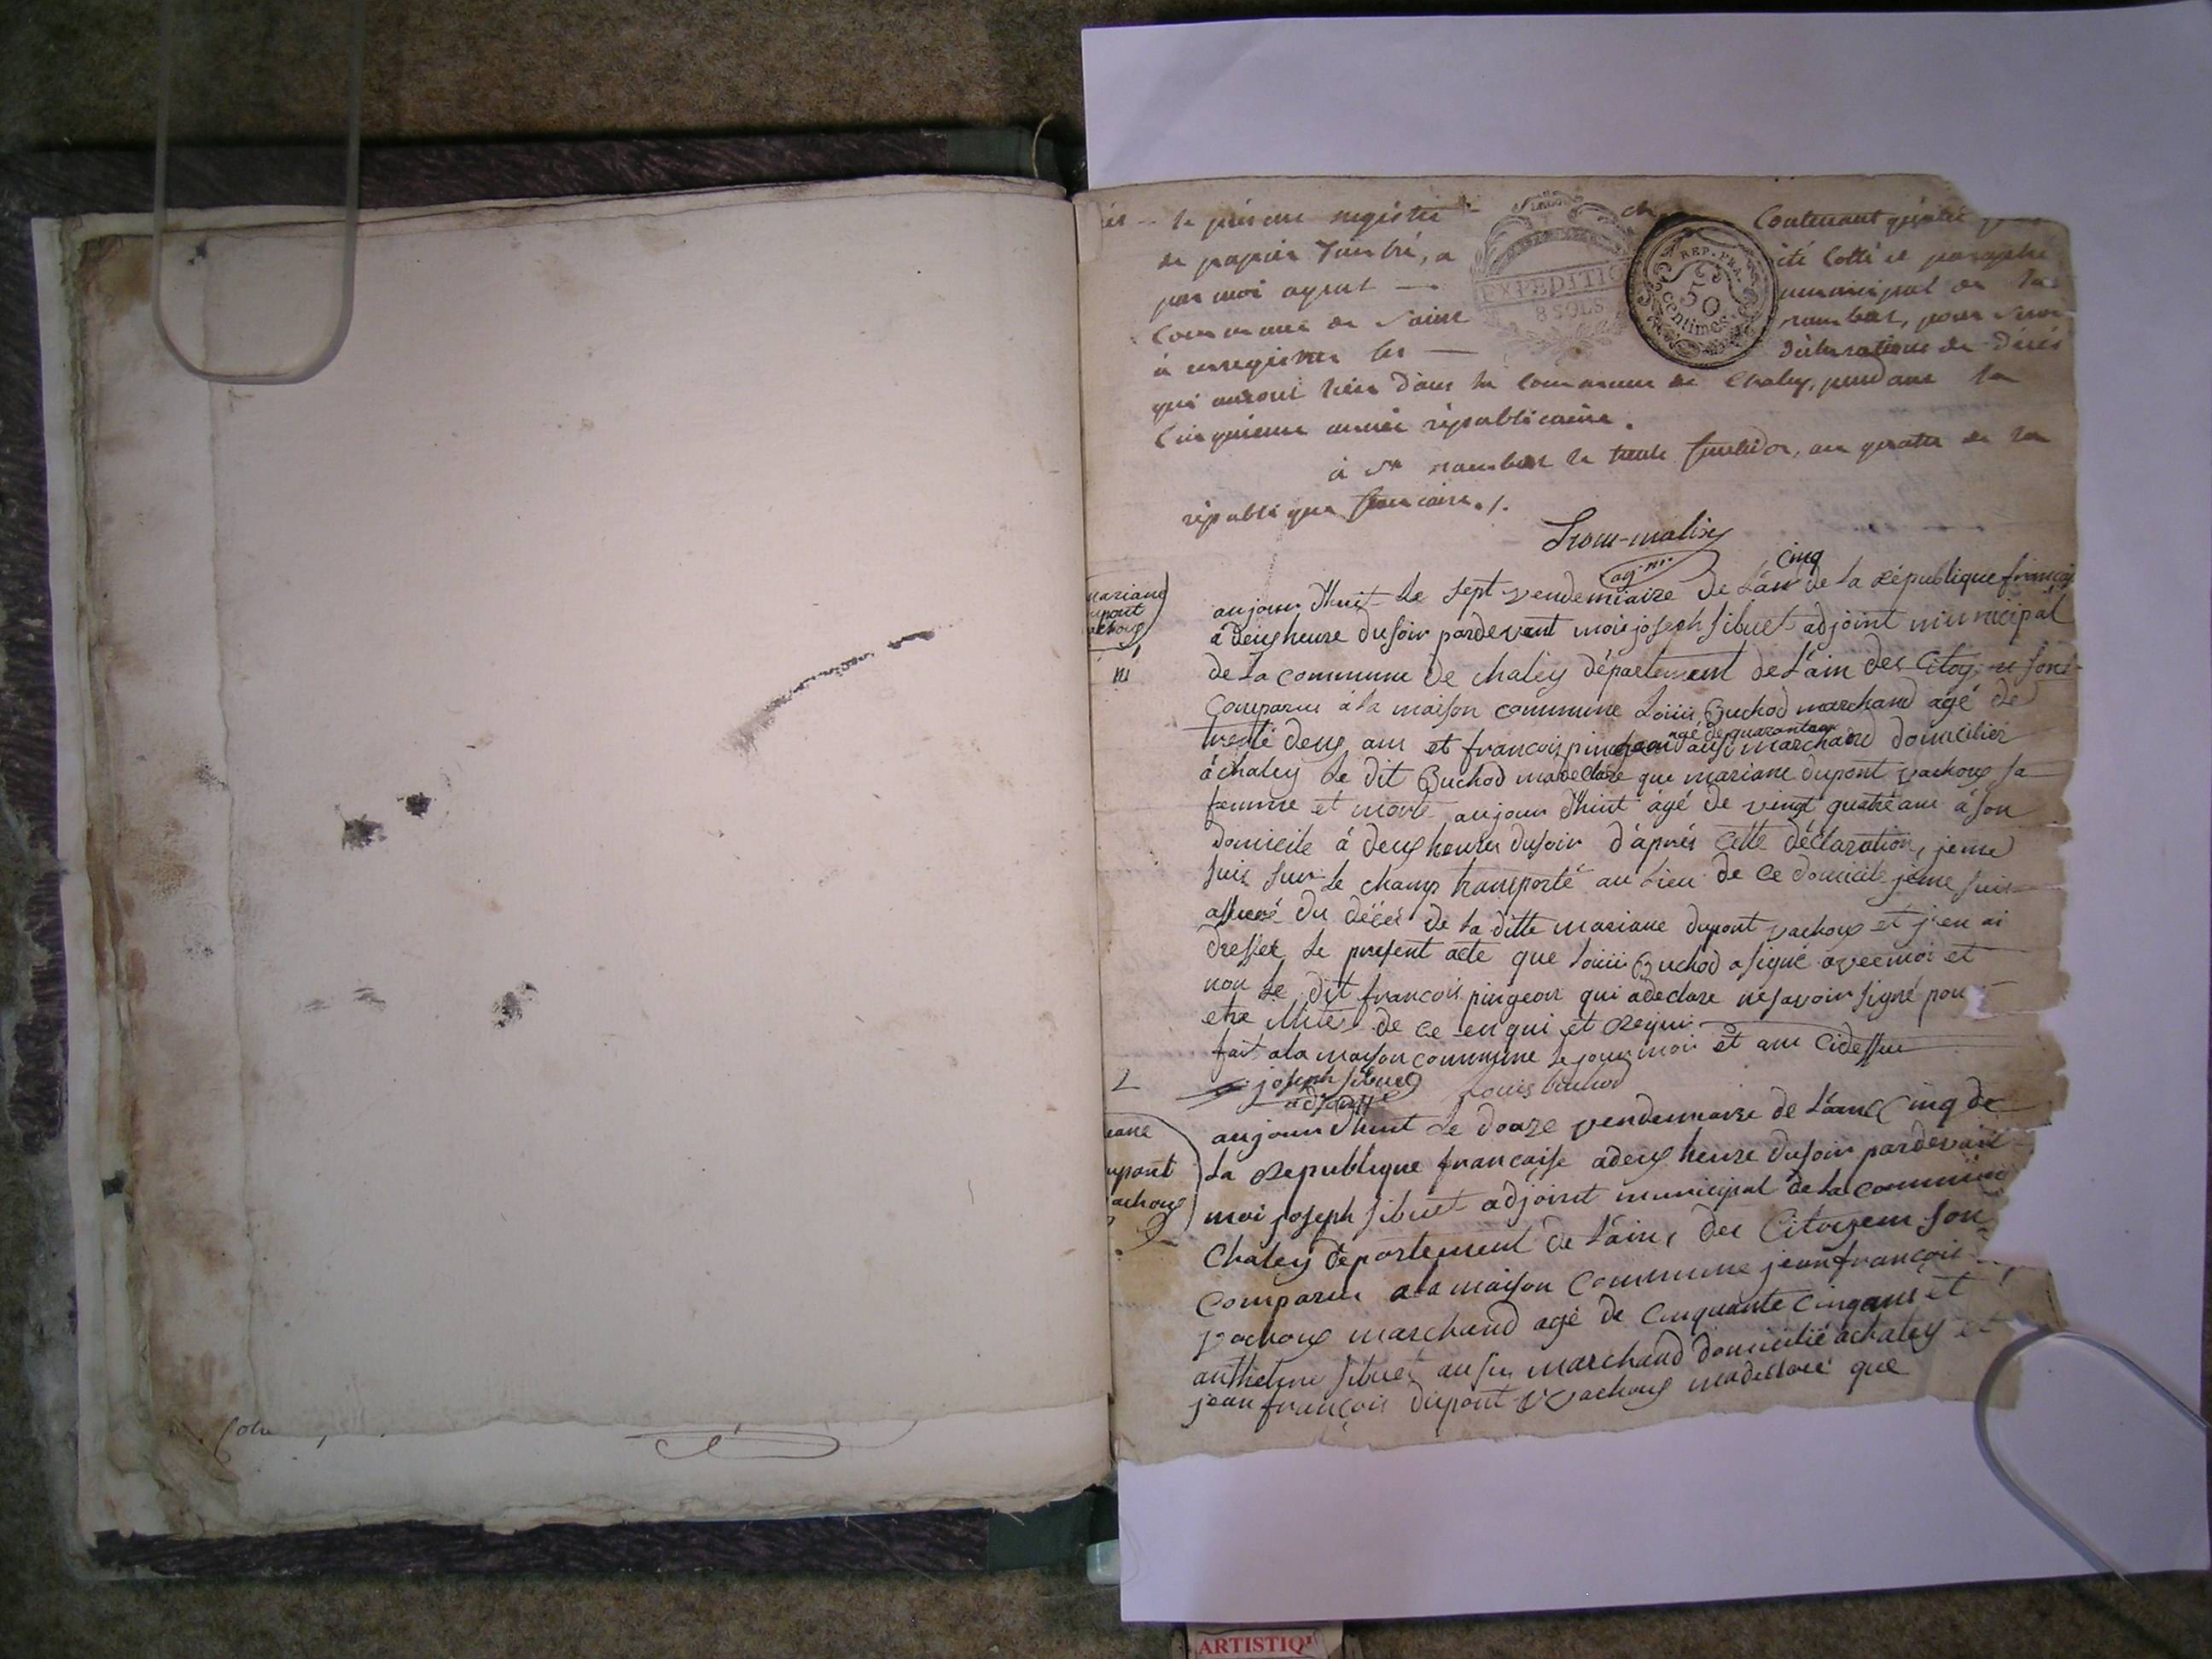 le présent registre contenant quatre
de papier timbré, a été cotté et paraphé
par moi agent municipal de la
commune de Saint rambert, pour servir
à enregistrer les déclarations de décés
qui auront lieu dans la commune de Chaley, pendant la
cinquieme année républicaine.
à St rambert le trente fructidor, an quatre de la
république francaise ./.
ag. m.
EXPEDITION
8 SOLS
REP. FRA.
50
centimes
mariane
dupont
vachoux
aujourdhuit le sept vendemiaire de L'an cinq de la république francai
à deux heure du soir pardevant moi joseph sibuet adjoint municipal
de la commune de chaley département de L'ain des Citoy
Comparu à la maison commune Louis Buchod marchand agé de
trente deux ans et francois pingeon agé de quarante ausi marchand domicilier
à chaley Le dit Buchod ma declare que mariane dupont vachoux sa
femme et morte aujourdhuit âgé de vingt quatre ans à son
domicile à deux heures du soir d'aprés cette déclaration, je me
suis sur le champ transporté au Lieu de ce domicile je me suis
assuré du décés de la ditte mariane dupont vachoux et j'en ai
dresser Le present acte que Louis Buchod a signé avec moi et
non Le dit francois pingeon qui a declare ne savoir signé pour
de ce enqui et Requi
fait a la maison commune Le jour mois et an ci dessus
joseph sibuet Louis buchod
adjoint
2
dupont
vachoux
aujourdhuit Le douze vendemiaire de L'ane Cinq de
La Republique francaise a deux heure du soir pardevant
moi joseph sibuet adjoint municipal de La commune
Chaley département de L'ain, des Citoyens son
Comparu a la maison Commune jean francois
vachoux marchand agé de Cinquante Cinq ans et
anthelme sibuet ausi marchand domicilié a chaley et
jean francois dupont vachoux ma declaré que
ARTISTIQ